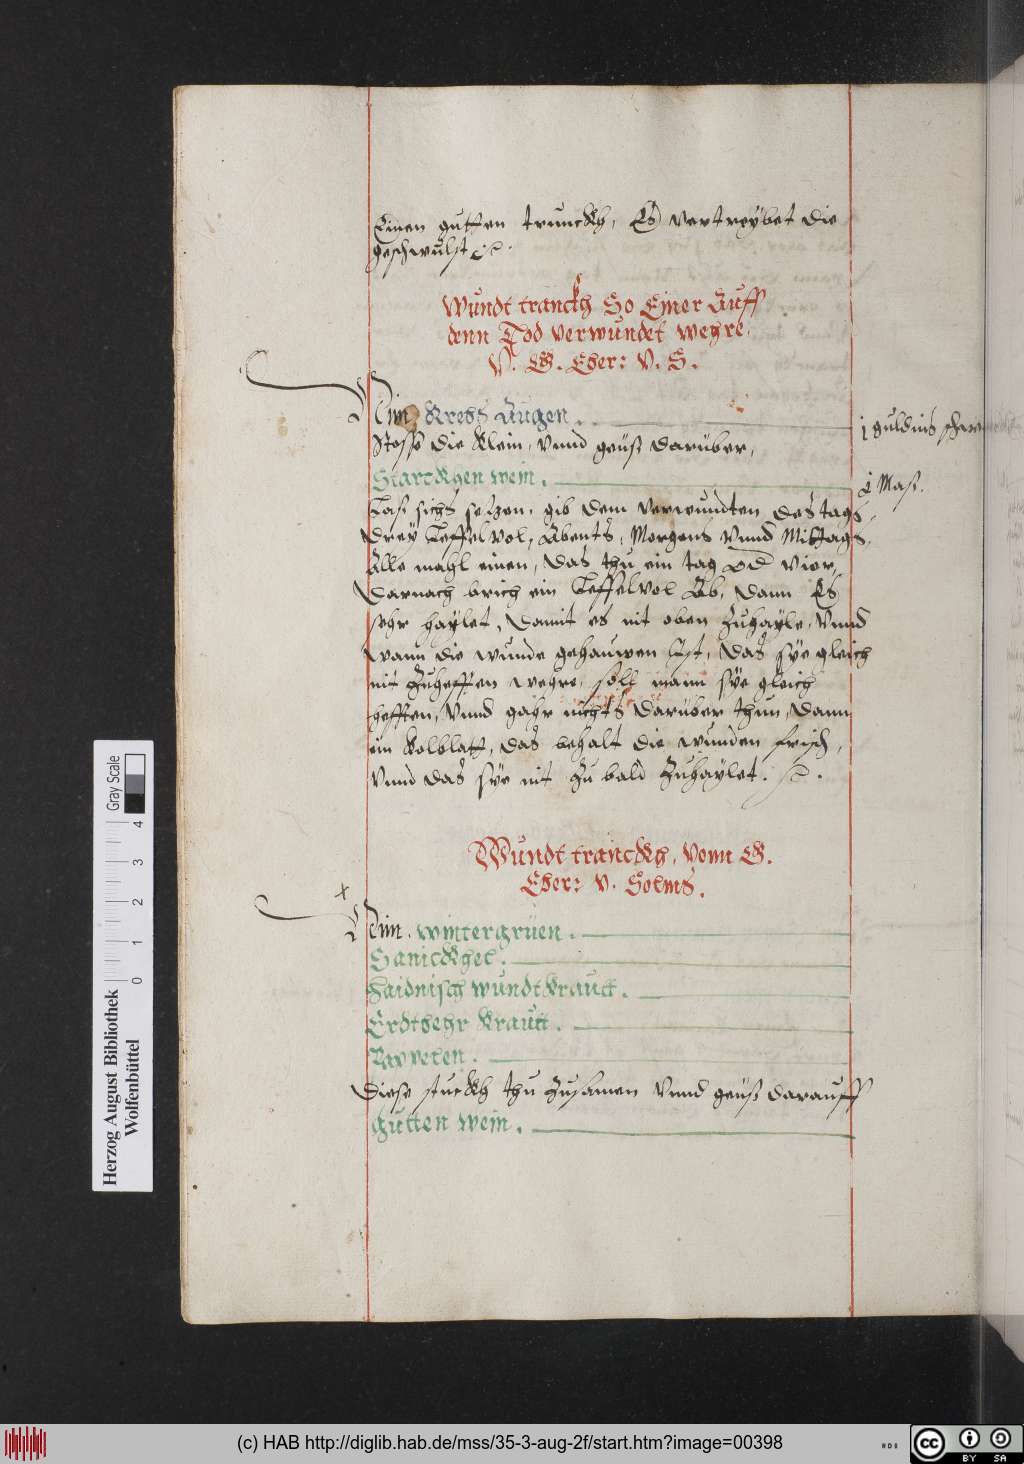 Einen gutten trunckh, Es vertreÿbet die
geschwulst
Wundt tranckh So Einer Auff
denn Tod verwundet wehre.
V. G. Eber: V. S.
Nim Krebs Augen.
Stoss die klein, vnnd geüß darüber,
j guldins schwer
Starckhen wein.
j Mas.
Lass sichs setzen, gib dem verwundten des tags,
dreÿ Leffel vol, Abents, Morgens vnnd Mittags,
Alle mahl einen, das thu ein tag od vier,
Darnach brich ein Leffel vol Ab, dann Es
sehr haÿlet, damit es nit oben Zuhayle, vnnd
wann die wunde gehauwen Ist, das sÿe gleich
nit Zuhefften wehre, soll mann sÿe gleich
hefften, Vnnd gahr nichts darüber thun, dann
ein Kolblatt, das behalt die wunden frisch,
Vnnd das sÿe nit Zu bald Zuhaylet.
Wundt tranckh, Vonn G.
Eber: V. Solms.
x
Nim. wintergrüen.
Sanickhel.
Haidnisch wundtkrautt.
Erdtbehr krautt.
Diese stuckh thu Zusamen Vnnd geüß darauff
gutten wein.
Herzog August Bibliothek
Wolfenbüttel
0 1 2 3 4
Gray Scale
(c) HAB http://diglib.hab.de/mss/35-3-aug-2f/start.htm?image=00398
cc BY SA